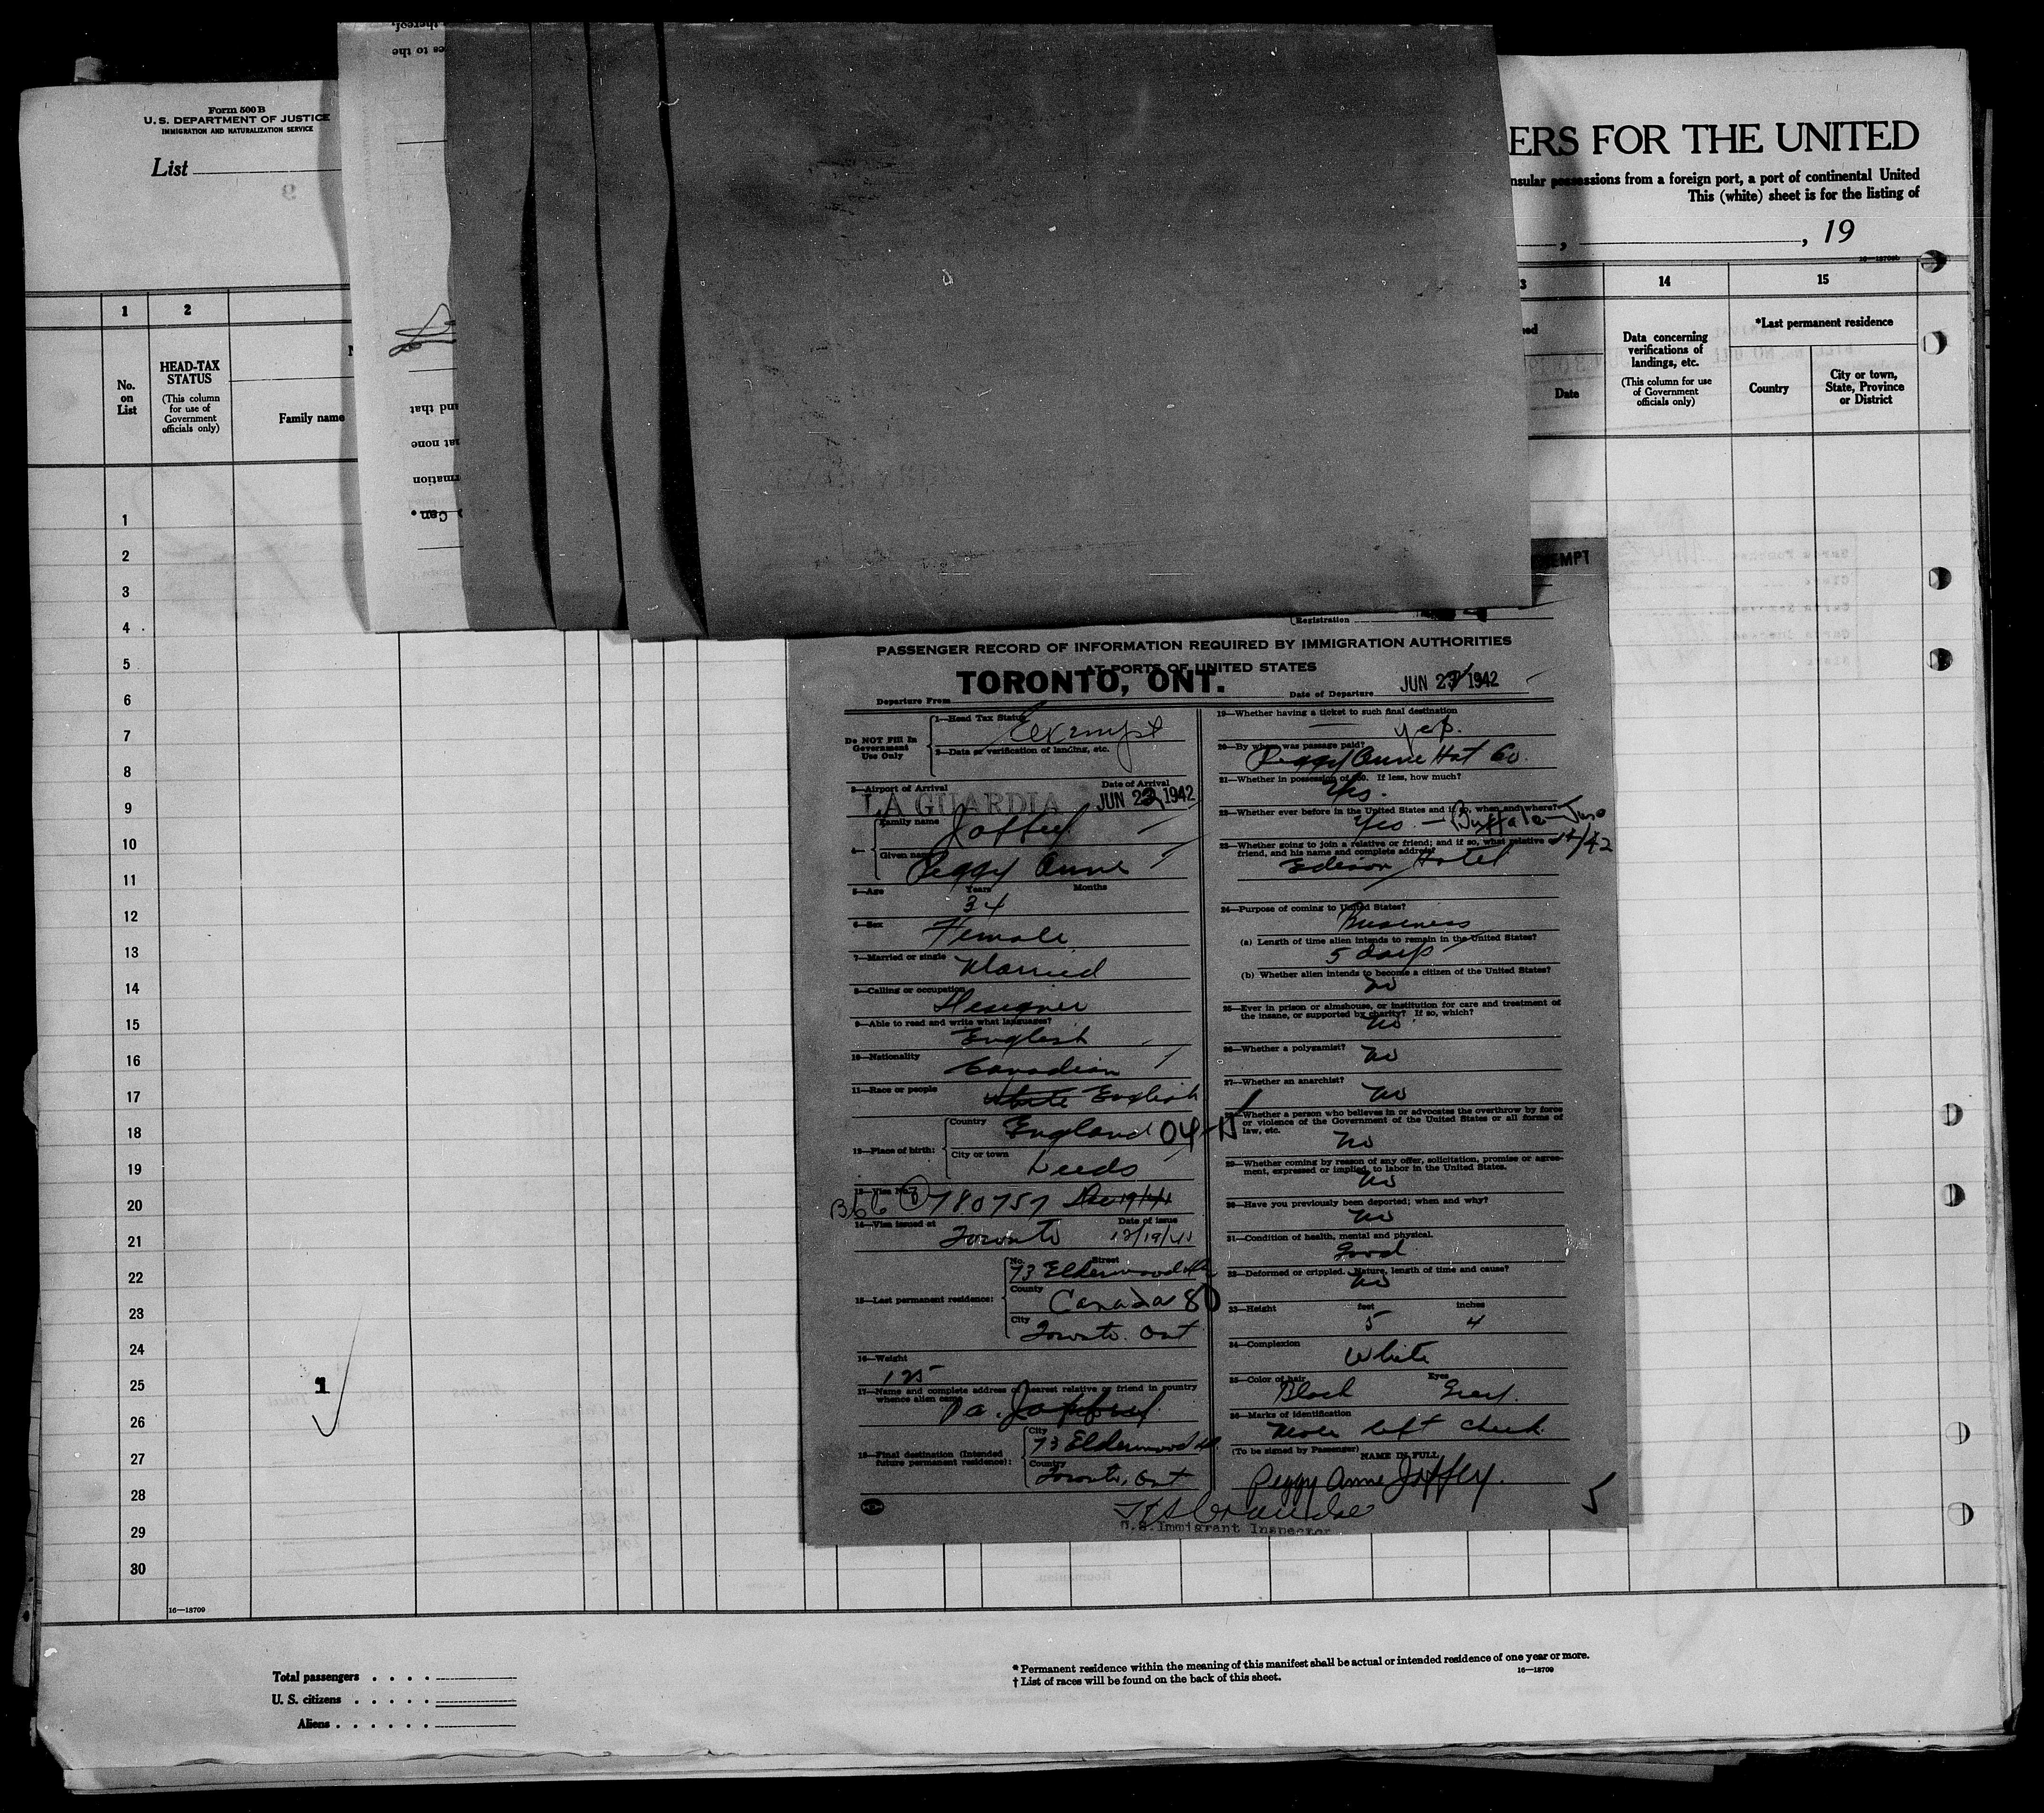 Form 500 B
U. S. DEPARTMENT OF JUSTICE
IMMIGRATION AND NATURALIZATION SERVICE
List
ERS FOR THE UNITED
nsular possessions from a foreign port, a port of continental United
This (white) sheet is for the listing of
, , 19
1 2 3 14 15
No. on List
HEAD-TAX STATUS
(This column for use of Government officials only)
Family name
Date
Data concerning verifications of landings, etc.
(This column for use of Government officials only)
*Last permanent residence
Country
City or town, State, Province or District
EMPT
Registration
PASSENGER RECORD OF INFORMATION REQUIRED BY IMMIGRATION AUTHORITIES
AT PORTS OF UNITED STATES
Departure From TORONTO, ONT. Date of Departure JUN 23 1942
Do NOT Fill In Government Use Only
1—Head Tax Status Exempt
2—Data or verification of landing, etc.
3—Airport of Arrival Date of Arrival
LA GUARDIA JUN 23 1942
4— Family name Joffey
Given name Peggy Anne
5—Age Years Months
34
6—Sex Female
7—Married or single Married
8—Calling or occupation Designer
9—Able to read and write what languages? English
10—Nationality Canadian
11—Race or people White English
12—Place of birth: Country England 04
City or town Leeds
13—Visa No. B66 780757 Dec 19/41
14—Visa issued at Toronto Date of issue 12/19/41
15—Last permanent residence: No. Street
73 Elderwood
County Canada 80
City Toronto. Ont
16—Weight 125
17—Name and complete address of nearest relative or friend in country whence alien came
18—Final destination (Intended future permanent residence): City 73 Elderwood
Country Toronto, Ont
19—Whether having a ticket to such final destination
yes.
20—By whom was passage paid?
Peggy Anne Hat Co.
21—Whether in possession of $50. If less, how much?
Yes.
22—Whether ever before in the United States and if so, when and where?
Yes. — Buffalo—June
23—Whether going to join a relative or friend; and if so, what relative or friend, and his name and complete address
Edison Hotel
24—Purpose of coming to United States?
Business
(a) Length of time alien intends to remain in the United States?
5 days
(b) Whether alien intends to become a citizen of the United States?
no
25—Ever in prison or almshouse, or institution for care and treatment of the insane, or supported by charity? If so, which?
no.
26—Whether a polygamist? no
27—Whether an anarchist? no
28—Whether a person who believes in or advocates the overthrow by force or violence of the Government of the United States or all forms of law, etc.
no
29—Whether coming by reason of any offer, solicitation, promise or agreement, expressed or implied, to labor in the United States.
no
30—Have you previously been deported; when and why?
no
31—Condition of health, mental and physical.
Good
32—Deformed or crippled. Nature, length of time and cause?
no
33—Height feet inches
5 4
34—Complexion
White
35—Color of hair Eyes
Black Grey.
36—Marks of identification
Mole left cheek
(To be signed by Passenger) NAME IN FULL
Peggy Anne Joffey.
U.S. Immigrant Inspector
5
1
2
3
4
5
6
7
8
9
10
11
12
13
14
15
16
17
18
19
20
21
22
23
24
25 1
26
27
28
29
30
16—18709
Total passengers . . . .
U. S. citizens . . . . .
Aliens . . . . . .
* Permanent residence within the meaning of this manifest shall be actual or intended residence of one year or more.
† List of races will be found on the back of this sheet.
16—18709